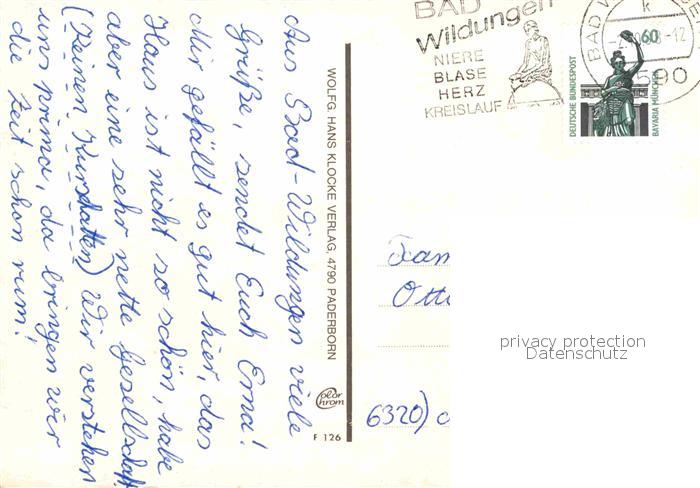 Aus Bad-Wildungen viele
Grüße, sendet Euch Erna!
Mir gefällt es gut hier, das
Haus ist nicht so schön, habe
aber eine sehr nette Gesellschaft
(Keinen Kurschatten) Wir verstehen
uns prima, da bringen wir
die Zeit schon rum!
WOLFG. HANS KLOCKE VERLAG, 4790 PADERBORN
color chrom
F 126
BAD
Wildungen
NIERE
BLASE
HERZ
KREISLAUF
BAD W
k
-12
590
60
DEUTSCHE BUNDESPOST
BAVARIA MÜNCHEN
Fam
Otto
6320)
privacy protection
Datenschutz